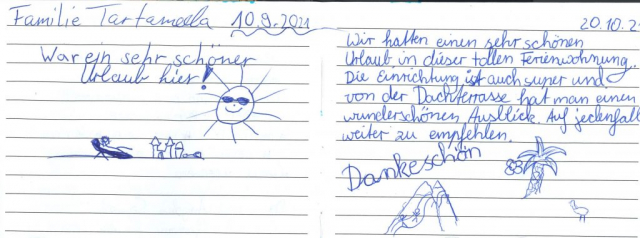 Familie Tartamella 10.9.2021
War ein sehr schöner
Urlaub hier!
20.10.2
Wir hatten einen sehr schönen
Urlaub in dieser tollen Ferienwohnung.
Die Einrichtung ist auch super und
von der Dachterrasse hat man einen
wunderschönen Ausblick. Auf jedenfall
weiter zu empfehlen.
Dankeschön